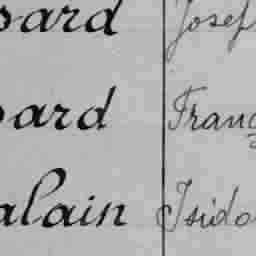 sard Josef
sard Franç
alain Isido